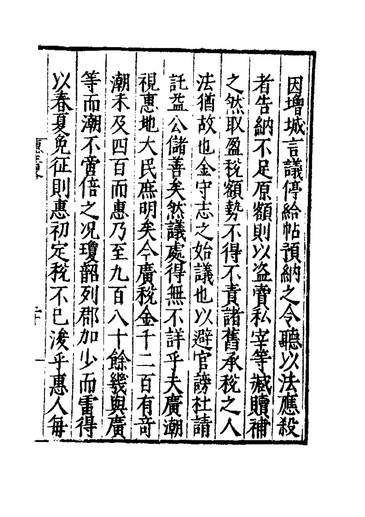 因增城言議停給帖預納之令聽以法應殺
者告納不足原額則以盗賣私宰等贓贖補
之然取盈稅額勢不得不責諸舊承稅之人
法猶故也金守志之始議也以避官謗杜請
託益公儲善矣然議處得無不詳乎夫廣潮
視惠地大民庶明矣今廣稅金千二百有竒
潮未及四百而惠乃至九百八十餘幾與廣
等而潮不啻倍之况瓊韶列郡加少而雷得
以春夏免征則惠初定稅不已浚乎惠人每